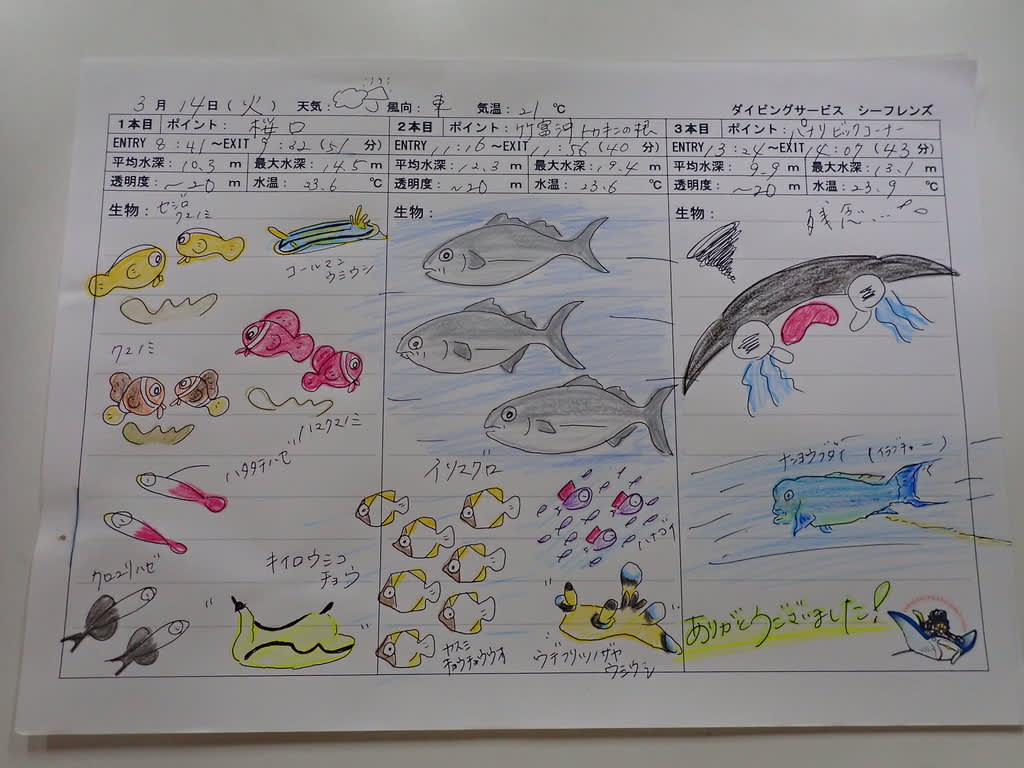 3月14日(火) 天気: 風向: 東 気温: 21 ℃ ダイビングサービス シーフレンズ
1本目 ポイント: 桜口
ENTRY 8:41～EXIT 9:32 (51分)
平均水深: 10.3 m 最大水深: 14.5 m
透明度: ~20 m 水温: 23.6 ℃
生物: セジロ
クマノミ
コールマン
ウミウシ
クマノミ
ハマクマノミ
ハタタテハゼ
クロユリハゼ
キイロウミコ
チョウ
2本目 ポイント: 竹富沖 トカキンの根
ENTRY 11:16～EXIT 11:56 (40分)
平均水深: 12.3 m 最大水深: 19.4 m
透明度: ~20 m 水温: 23.6 ℃
生物:
イソマグロ
ハナゴイ
カスミ
チョウチョウウオ
ウデフリツノザヤ
ウミウシ
3本目 ポイント: パナリ ビッグコーナー
ENTRY 13:24～EXIT 14:07 (43分)
平均水深: 9.9 m 最大水深: 13.1 m
透明度: ~20 m 水温: 23.9 ℃
生物: 残念...
ナンヨウブダイ (イラブチャー)
ありがとうございました!